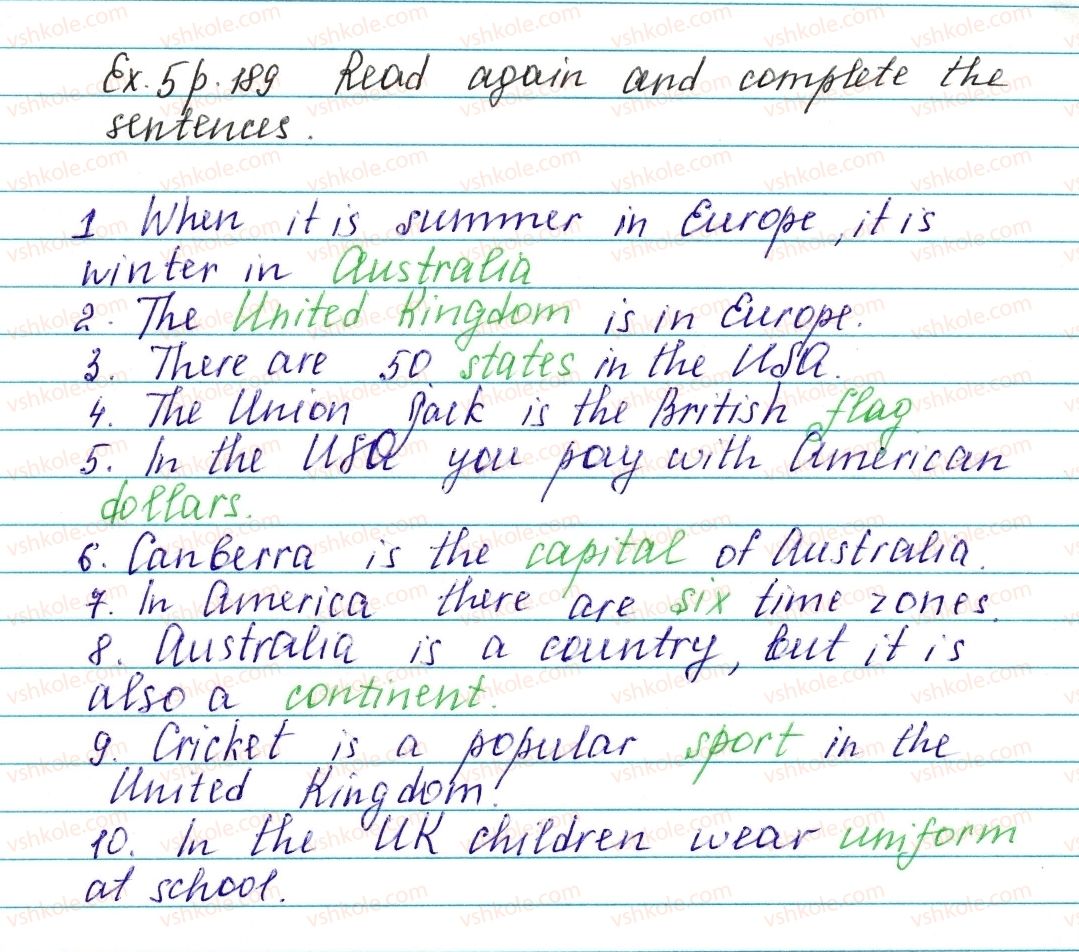 Ex. 5 p. 189 Read again and complete the
sentences.
1 When it is summer in Europe, it is
winter in Australia
2. The United Kingdom is in Europe.
3. There are 50 states in the USA.
4. The Union Jack is the British flag
5. In the USA you pay with American
dollars.
6. Canberra is the capital of Australia.
7. In America there are six time zones.
8. Australia is a country, but it is
also a continent.
9. Cricket is a popular sport in the
United Kingdom.
10. In the UK children wear uniform
at school.